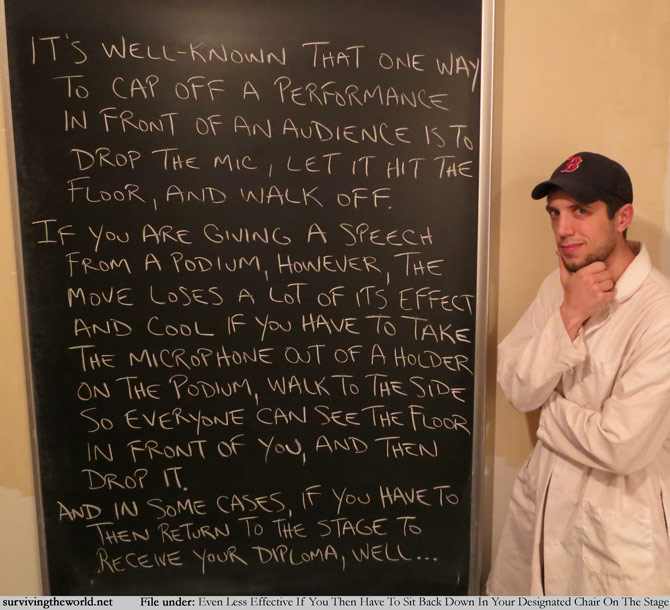 IT'S WELL-KNOWN THAT ONE WAY
TO CAP OFF A PERFORMANCE
IN FRONT OF AN AUDIENCE IS TO
DROP THE MIC, LET IT HIT THE
FLOOR, AND WALK OFF.
IF YOU ARE GIVING A SPEECH
FROM A PODIUM, HOWEVER, THE
MOVE LOSES A LOT OF ITS EFFECT
AND COOL IF YOU HAVE TO TAKE
THE MICROPHONE OUT OF A HOLDER
ON THE PODIUM, WALK TO THE SIDE
SO EVERYONE CAN SEE THE FLOOR
IN FRONT OF YOU, AND THEN
DROP IT.
AND IN SOME CASES, IF YOU HAVE TO
THEN RETURN TO THE STAGE TO
RECEIVE YOUR DIPLOMA, WELL...
B
survivingtheworld.net File under: Even Less Effective If You Then Have To Sit Back Down In Your Designated Chair On The Stage